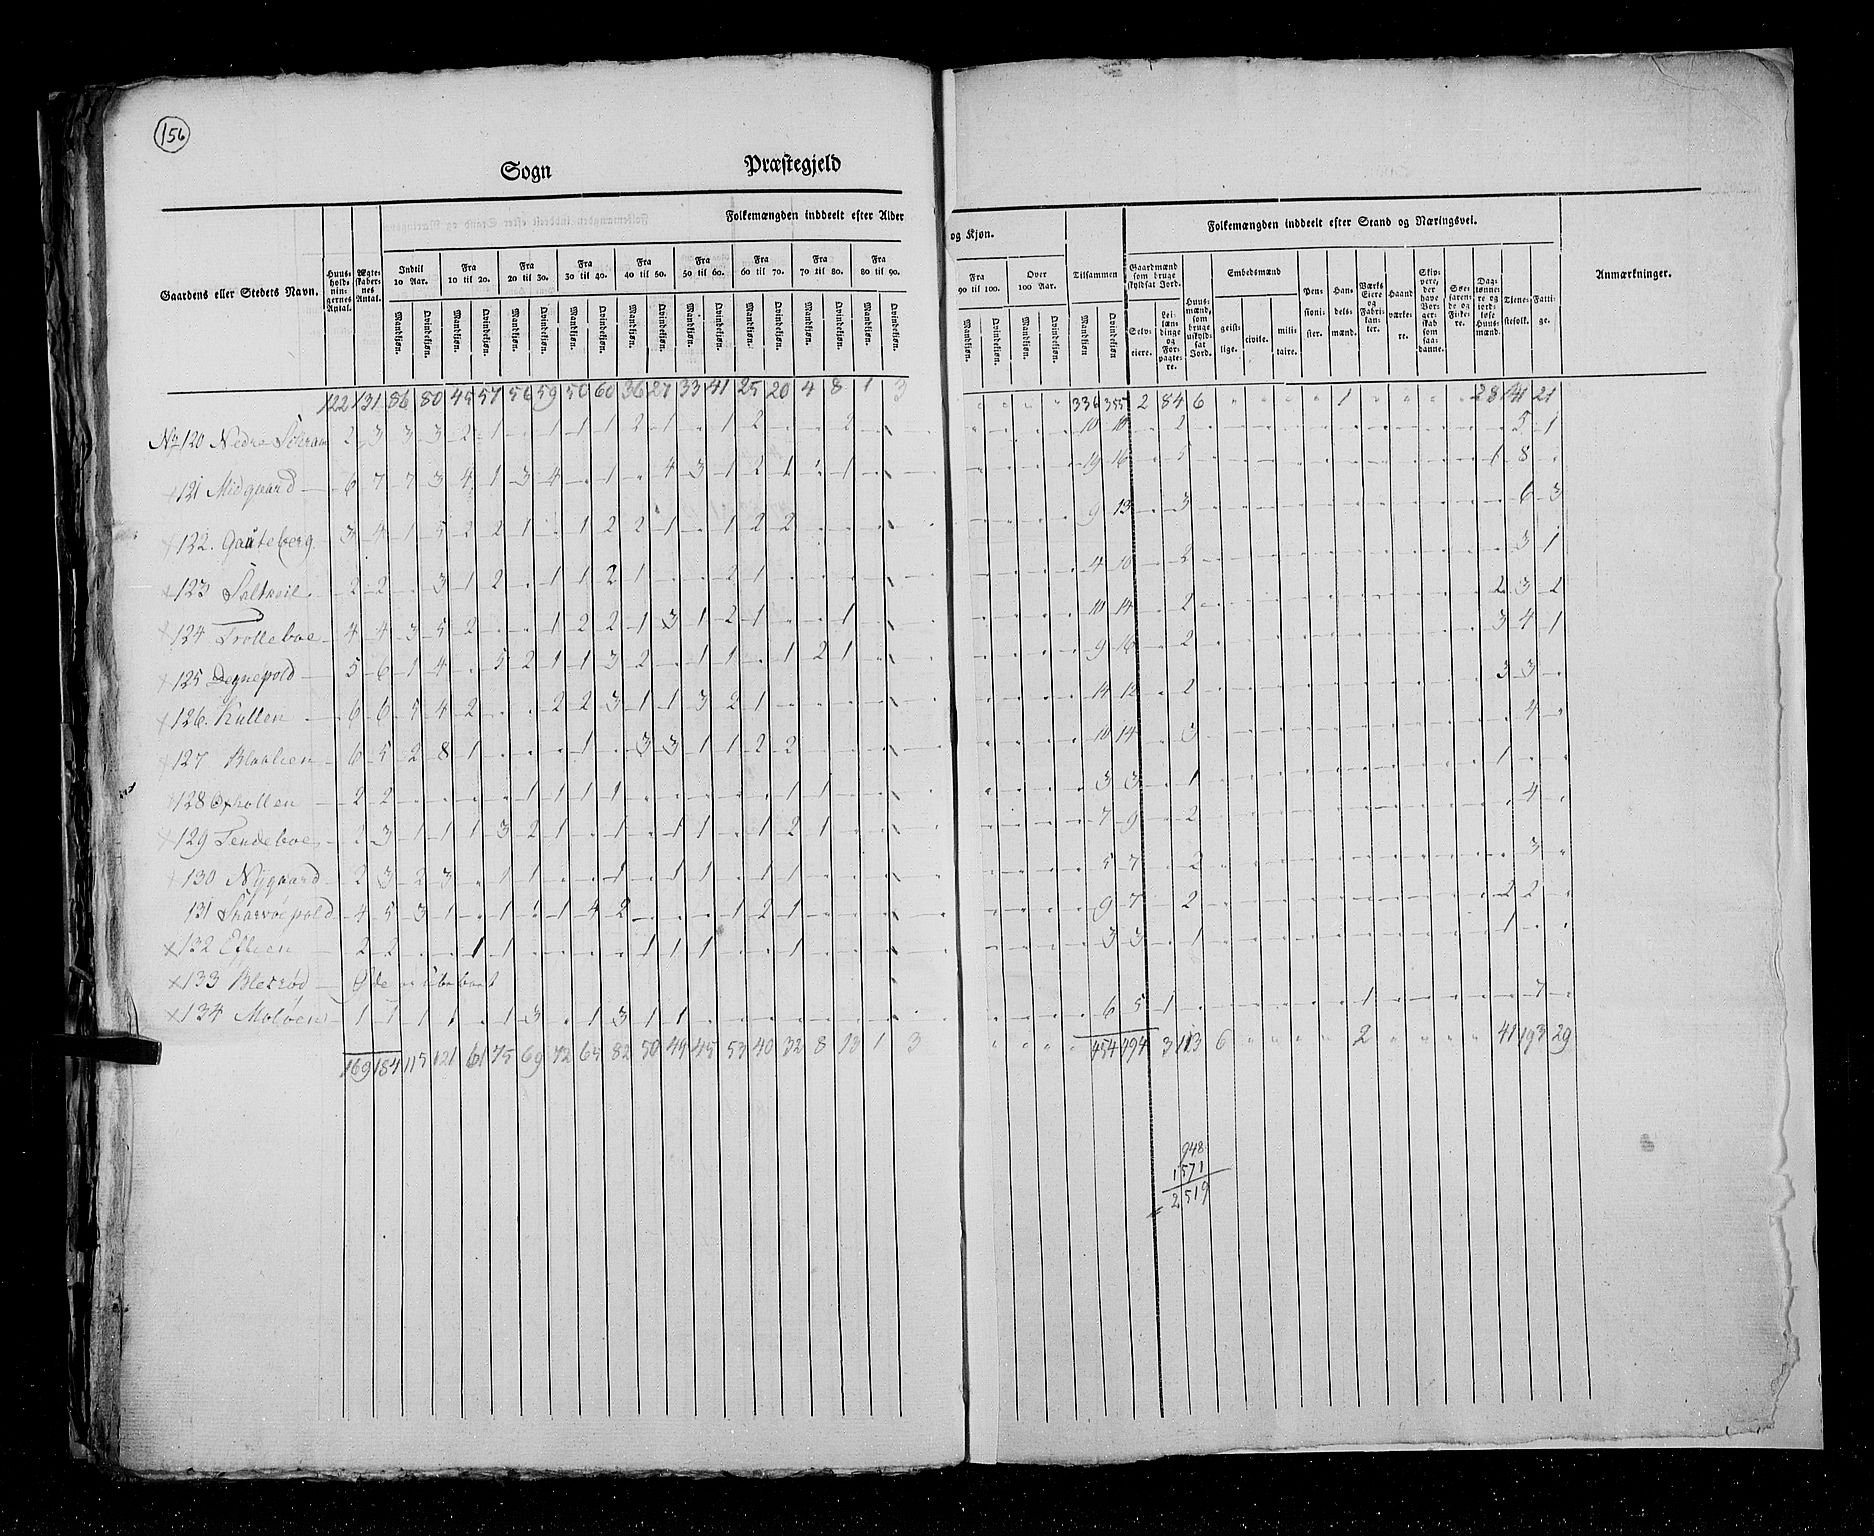 156
Sogn Præstegjeld
Folkemængden inddeelt efter Alder og Kjøn. Folkemængden inddeelt efter Stand og Næringsvei.
Gaardens eller Stedets Navn. Huus-holdnin-gernes Antal. Ægte-skaber-nes Antal. Indtil 10 Aar. Fra 10 til 20. Fra 20 til 30. Fra 30 til 40. Fra 40 til 50. Fra 50 til 60. Fra 60 til 70. Fra 70 til 80. Fra 80 til 90. Fra 90 til 100. Over 100 Aar. Tilsammen Gaardmænd som bruge skyldsat Jord. Huus-mænd, som bruge uskyld-sat Jord. Embedsmænd Pen-sioni-ster. Han-dels-mænd. Værks Eiere og Fabri-kan-ter. Haand værke-re. Skip-pere, der have Bor-ger-skab som saa-danne. Søe-farende og Fiske-re. Dag-lønne-re og jord-løse Huus-mænd. Tjene-stefolk. Fatti-ge. Anmærkninger.
Mandkjøn. Qvindekjøn. Mandkjøn. Qvindekjøn. Mandkjøn. Qvindekjøn. Mandkjøn. Qvindekjøn. Mandkjøn. Qvindekjøn. Mandkjøn. Qvindekjøn. Mandkjøn. Qvindekjøn. Mandkjøn. Qvindekjøn. Mandkjøn. Qvindekjøn. Mandkjøn. Qvindekjøn. Mandkjøn. Qvindekjøn. Mandkjøn Qvindekjøn Selv-eiere. Lei-læn-dinge og For-pagte-re. geist-lige. civile. mili-taire.
122 131 86 80 45 57 56 59 50 60 36 27 33 41 25 20 4 8 1 3 336 355 2 84 6 1 28 141 21
No 120 Nedre 2 3 3 3 2 1 1 1 1 2 1 1 2 2 10 10 2 5 1
121 Midgaard 6 7 7 3 4 1 3 4 1 4 3 1 2 1 1 19 16 5 1 8
122. Gauteberg 3 4 1 5 2 2 1 1 2 2 1 1 2 2 9 13 3 6 3
123 2 2 3 1 2 1 1 2 1 2 1 4 10 2 3 1
124 Trolleboe 4 4 3 5 2 1 2 2 1 3 1 2 1 1 10 14 2 2 3 2
125 Degnepold 5 6 1 4 5 2 1 1 3 2 1 1 1 2 1 9 16 2 3 4 1
126. Kullen 6 6 5 4 2 2 2 3 1 1 3 2 1 14 12 2 3 3
127 6 5 2 8 1 1 3 3 1 1 2 2 10 14 3 4
128 2 2 1 1 1 1 1 1 3 3 1 1
129 Tendeboe 2 3 1 1 1 3 2 1 1 1 1 1 2 1 7 9 2 4
130 Nygaard 2 3 2 3 1 1 1 1 1 1 1 5 7 2 3
131 4 5 3 1 1 1 4 2 1 2 1 9 7 2 2 2
132 2 2 1 1 1 1 1 1 3 3 1 1
133
134 1 1 1 1 1 3 1 3 1 1 6 5 1 1 7
169 184 115 121 61 75 69 72 65 82 50 49 45 53 40 32 8 13 1 3 454 494 3 113 6 2 41 193 29
948
1571
2519